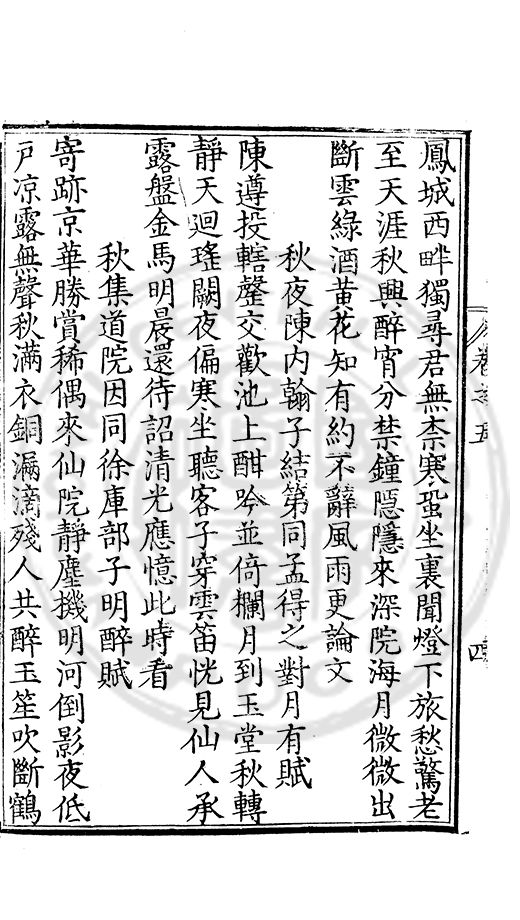 鳳城西畔獨尋君無柰寒蛩坐裏聞燈下旅愁驚老
至天涯秋興醉宵分禁鐘隱隱來深院海月微微出
斷雲綠酒黃花知有約不辭風雨更論文
秋夜陳内翰子結第同孟得之對月有賦
陳遵投轄罄交歡池上酣吟並倚欄月到玉堂秋轉
靜天迴瑤闕夜偏寒坐聽客子穿雲笛恍見仙人承
露盤金馬明晨還待詔清光應憶此時看
秋集道院因同徐庫部子明醉賦
寄跡京華勝賞稀偶來仙院靜塵機明河倒影夜低
戸凉露無聲秋滿衣銅漏滴殘人共醉玉笙吹斷鶴
卷之五
四